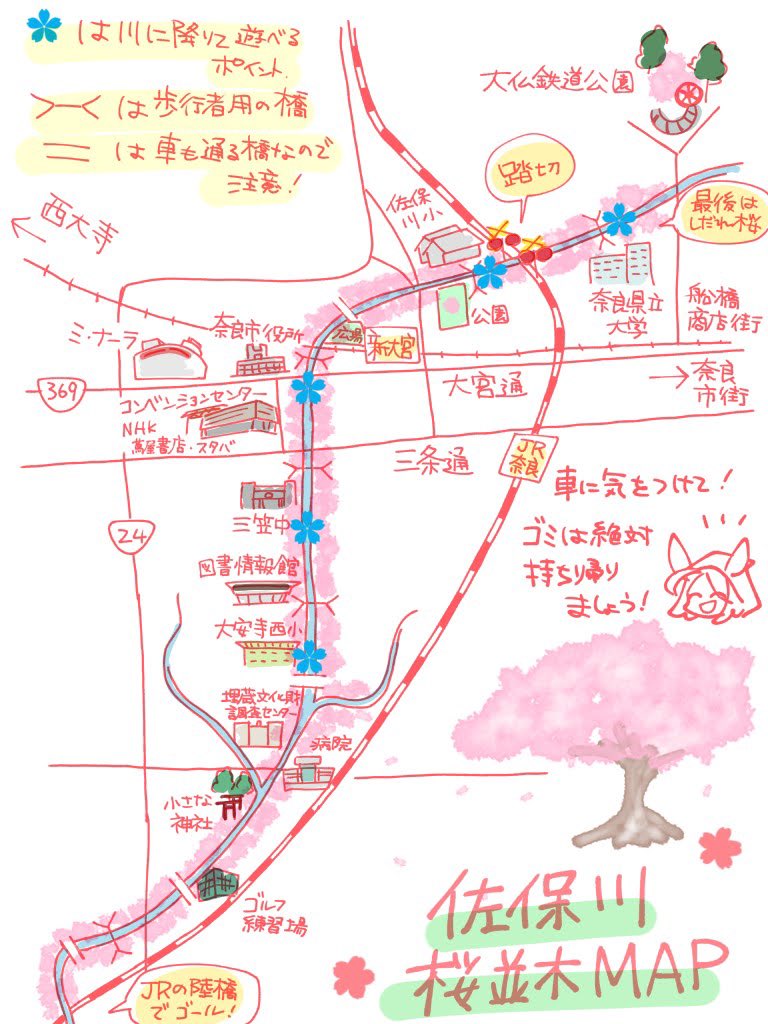 は川に降りて遊べる
ポイント.
は歩行者用の橋
は車も通る橋なので
注意!
大仏鉄道公園
西大寺
佐保
川小
踏切
最後は
しだれ桜
奈良県立
大学
船橋
商店街
公園
ミ・ナーラ
奈良市役所
広場
新大宮
369
大宮通
奈良
市街
コンベンションセンター
NHK
蔦屋書店・スタバ
三条通
JR
奈良
24
三笠中
図書情報館
大安寺西小
車に気をつけて!
ゴミは絶対
持ち帰り
ましょう!
埋蔵文化財
調査センター
病院
小さな
神社
ゴルフ
練習場
JRの陸橋
でゴール!
佐保川
桜並木MAP